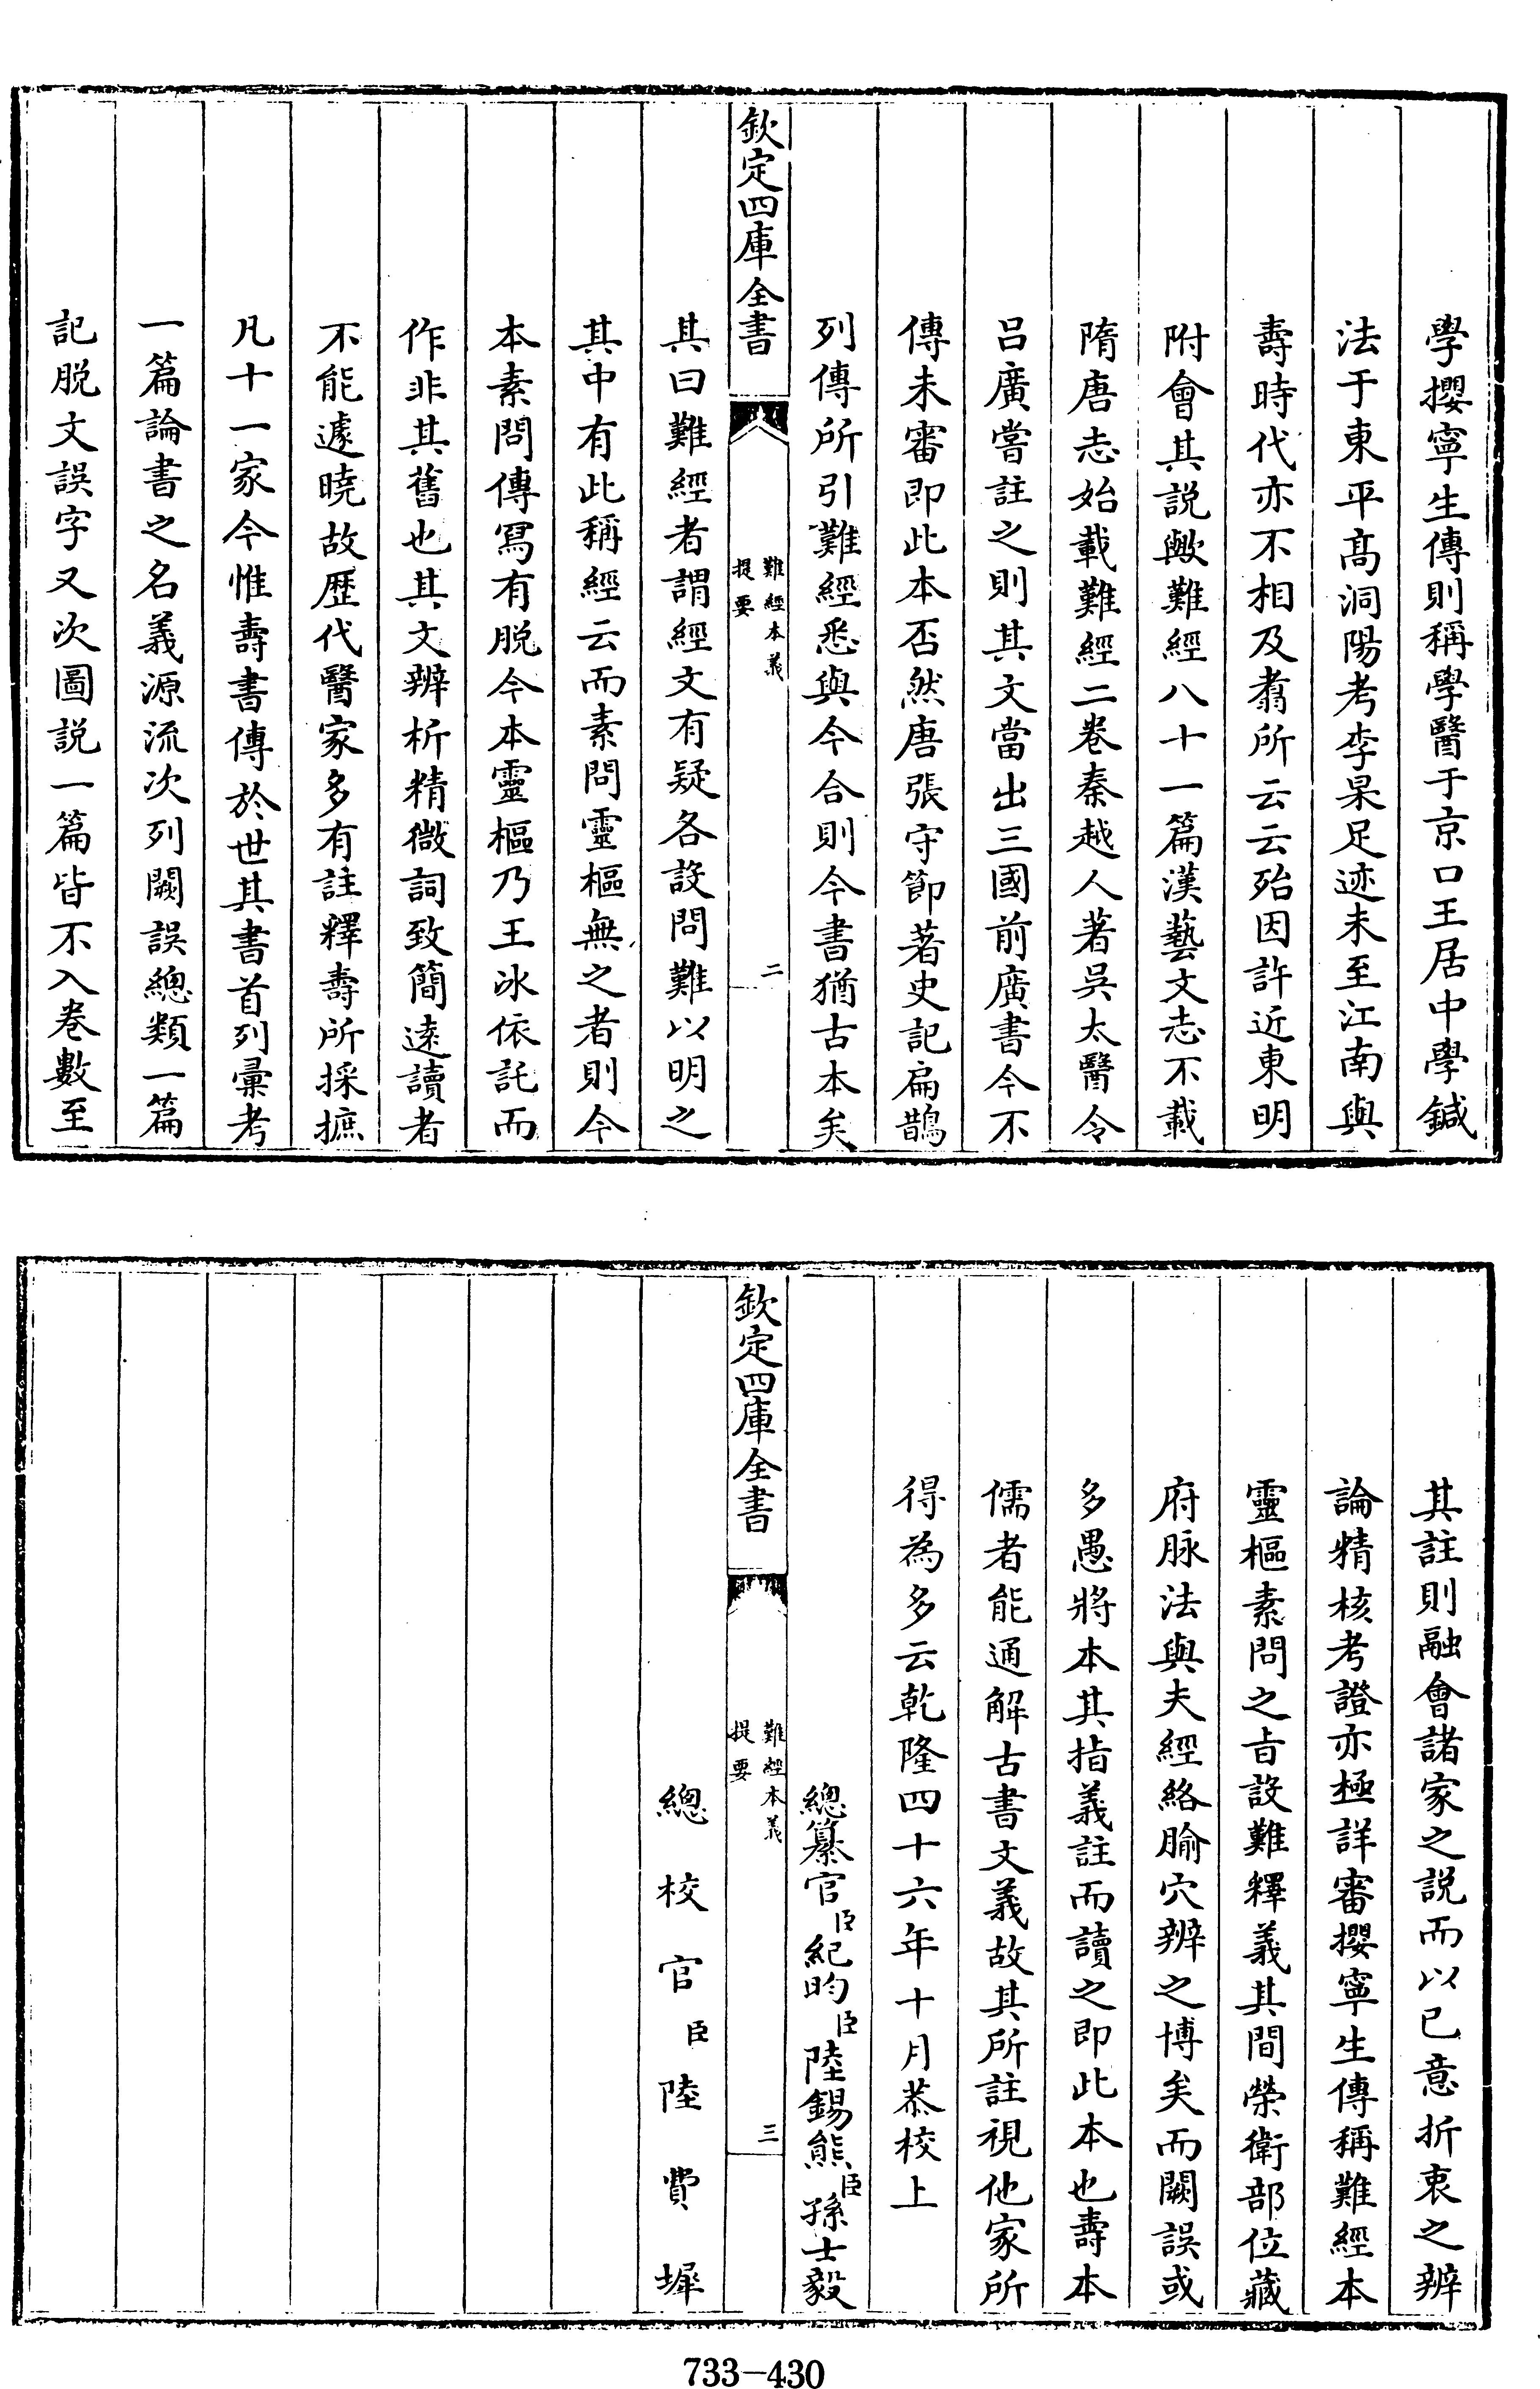 學攖寧生傳則稱學醫于京口王居中學鍼
法于東平髙洞陽考李杲足迹未至江南與
壽時代亦不相及翥所云云殆因許近東明
附會其説歟難經八十一篇漢藝文志不載
隋唐志始載難經二卷秦越人著吳太醫令
吕廣嘗註之則其文當出三國前廣書今不
傳未審即此本否然唐張守節著史記扁鵲
列傳所引難經悉與今合則今書猶古本矣
欽定四庫全書
難經本義
提要
二
其曰難經者謂經文有疑各設問難以明之
其中有此稱經云而素問靈樞無之者則今
本素問傳冩有脱今本靈樞乃王冰依託而
作非其舊也其文辨析精微詞致簡逺讀者
不能遽曉故歴代醫家多有註釋壽所採摭
凡十一家今惟壽書傳於世其書首列彚考
一篇論書之名義源流次列闕誤總類一篇
記脱文誤字又次圖説一篇皆不入卷數至
其註則融會諸家之説而以已意折衷之辨
論精核考證亦極詳審攖寧生傳稱難經本
靈樞素問之㫖設難釋義其間榮衛部位藏
府脉法與夫經絡腧穴辨之博矣而闕誤或
多愚將本其指義註而讀之即此本也壽本
儒者能通解古書文義故其所註視他家所
得為多云乾隆四十六年十月恭校上
總纂官臣紀昀臣陸錫熊臣孫士毅
欽定四庫全書
難經本義
提要
三
總校官臣陸費墀
733-430